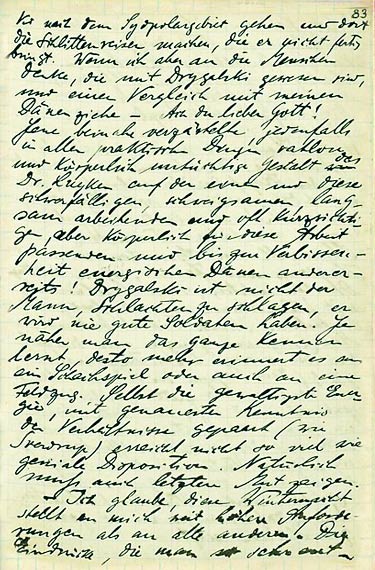 83
ko nach dem Südpolargebiet gehen und dort
die Schlittenreisen machen, die er nicht fertig
bringt. Wenn ich aber an die Menschen
denke, die mit Drygalski gewesen sind,
und einen Vergleich mit meinen
Dänen ziehe — Ach du lieber Gott!
Jene beinahe verzärtelte, jedenfalls
in allen praktischen Dingen
und körperlich untüchtige Gestalt des
Dr. auf der einen und diese
schwerfälligen, schweigsamen lang-
sam arbeitenden und oft kurzsichti-
ge, aber körperlich in diese Arbeit
passenden und bis zur Verbissen-
heit energischen Dänen anderer-
seits! Drygalski ist nicht der
Mann, Schlachten zu schlagen, er
wird nie gute Soldaten haben. Je
näher man das ganze kennen
lernt, desto mehr erinnert es an
ein Schachspiel oder auch an einen
Feldzug. Selbst die gewaltigste Ener-
gie, mit genauester Kenntnis
der Verhältnisse gepaart (wie
Sverdrup) erreicht nicht so viel wie
geniale Disposition. Natürlich
muss auch letztere Mut zeigen.
— Ich glaube, diese Winternacht
stellt an mich mit höhere Anforde-
rungen als an alle anderen. Die
Eindrücke, die man